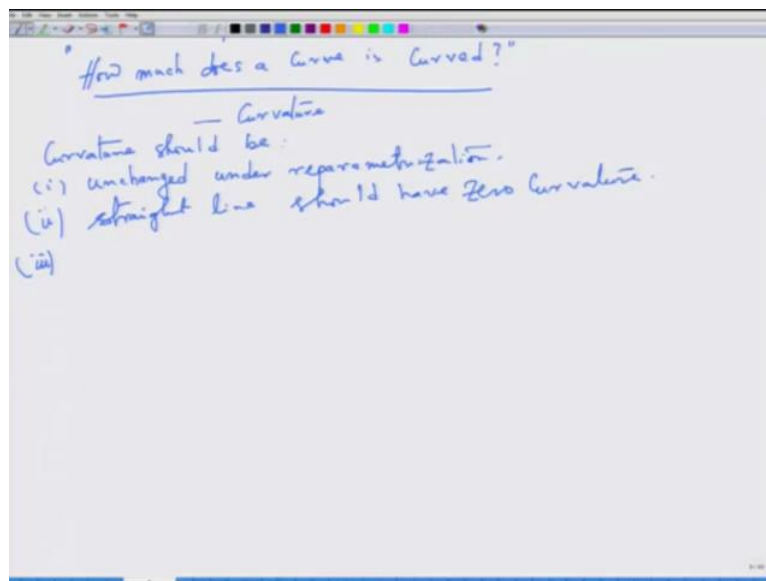 "How much does a Curve is Curved?"
— Curvature
Curvature should be:
(i) unchanged under reparametrization.
(ii) straight line should have Zero Curvature.
(iii)